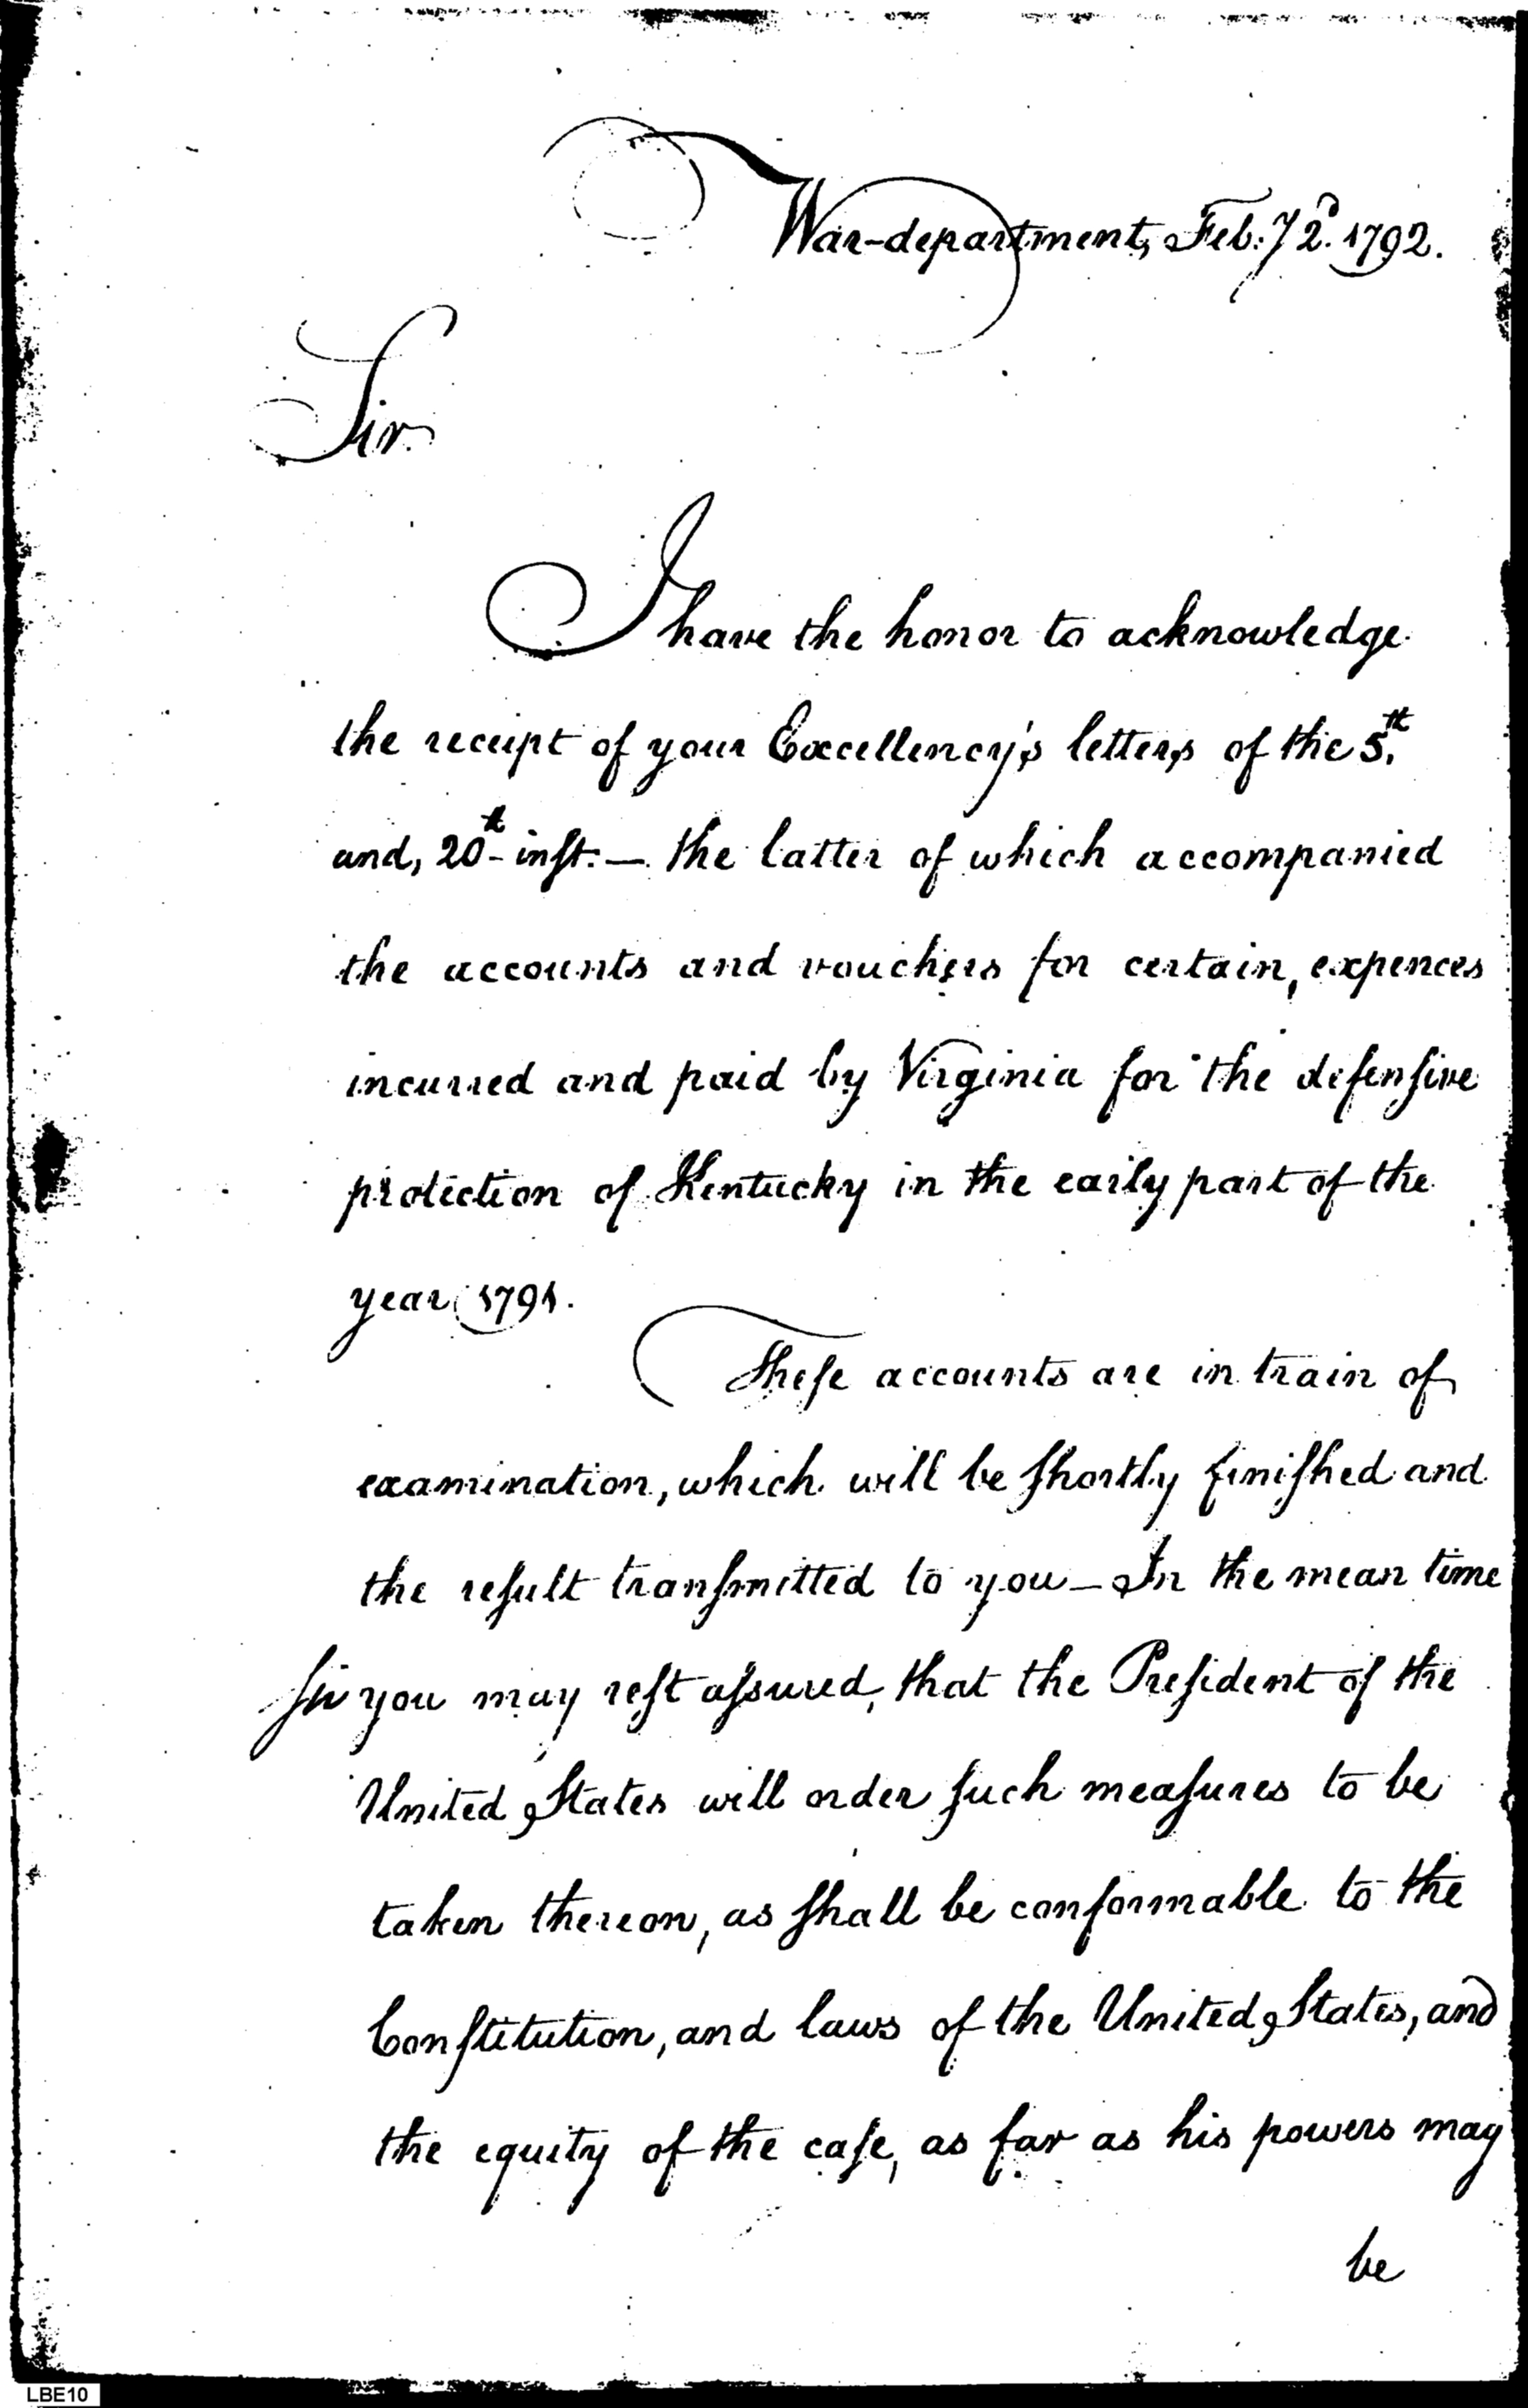 War-department, Feb:y 2d. 1792.
Sir.
I have the honor to acknowledge
the receipt of your Excellency's letters of the 5th.
and, 20th inst:— the latter of which accompanied
the accounts and vouchers for certain, expences
incurred and paid by Virginia for the defensive
protection of Kentucky in the early part of the
year 1791.
These accounts are in train of
examination, which will be shortly finished and
the result transmitted to you — In the mean time
Sir you may rest assured, that the President of the
United States will order such measures to be
taken thereon, as shall be conformable to the
Constitution, and laws of the United States, and
the equity of the case, as far as his powers may
be
LBE10